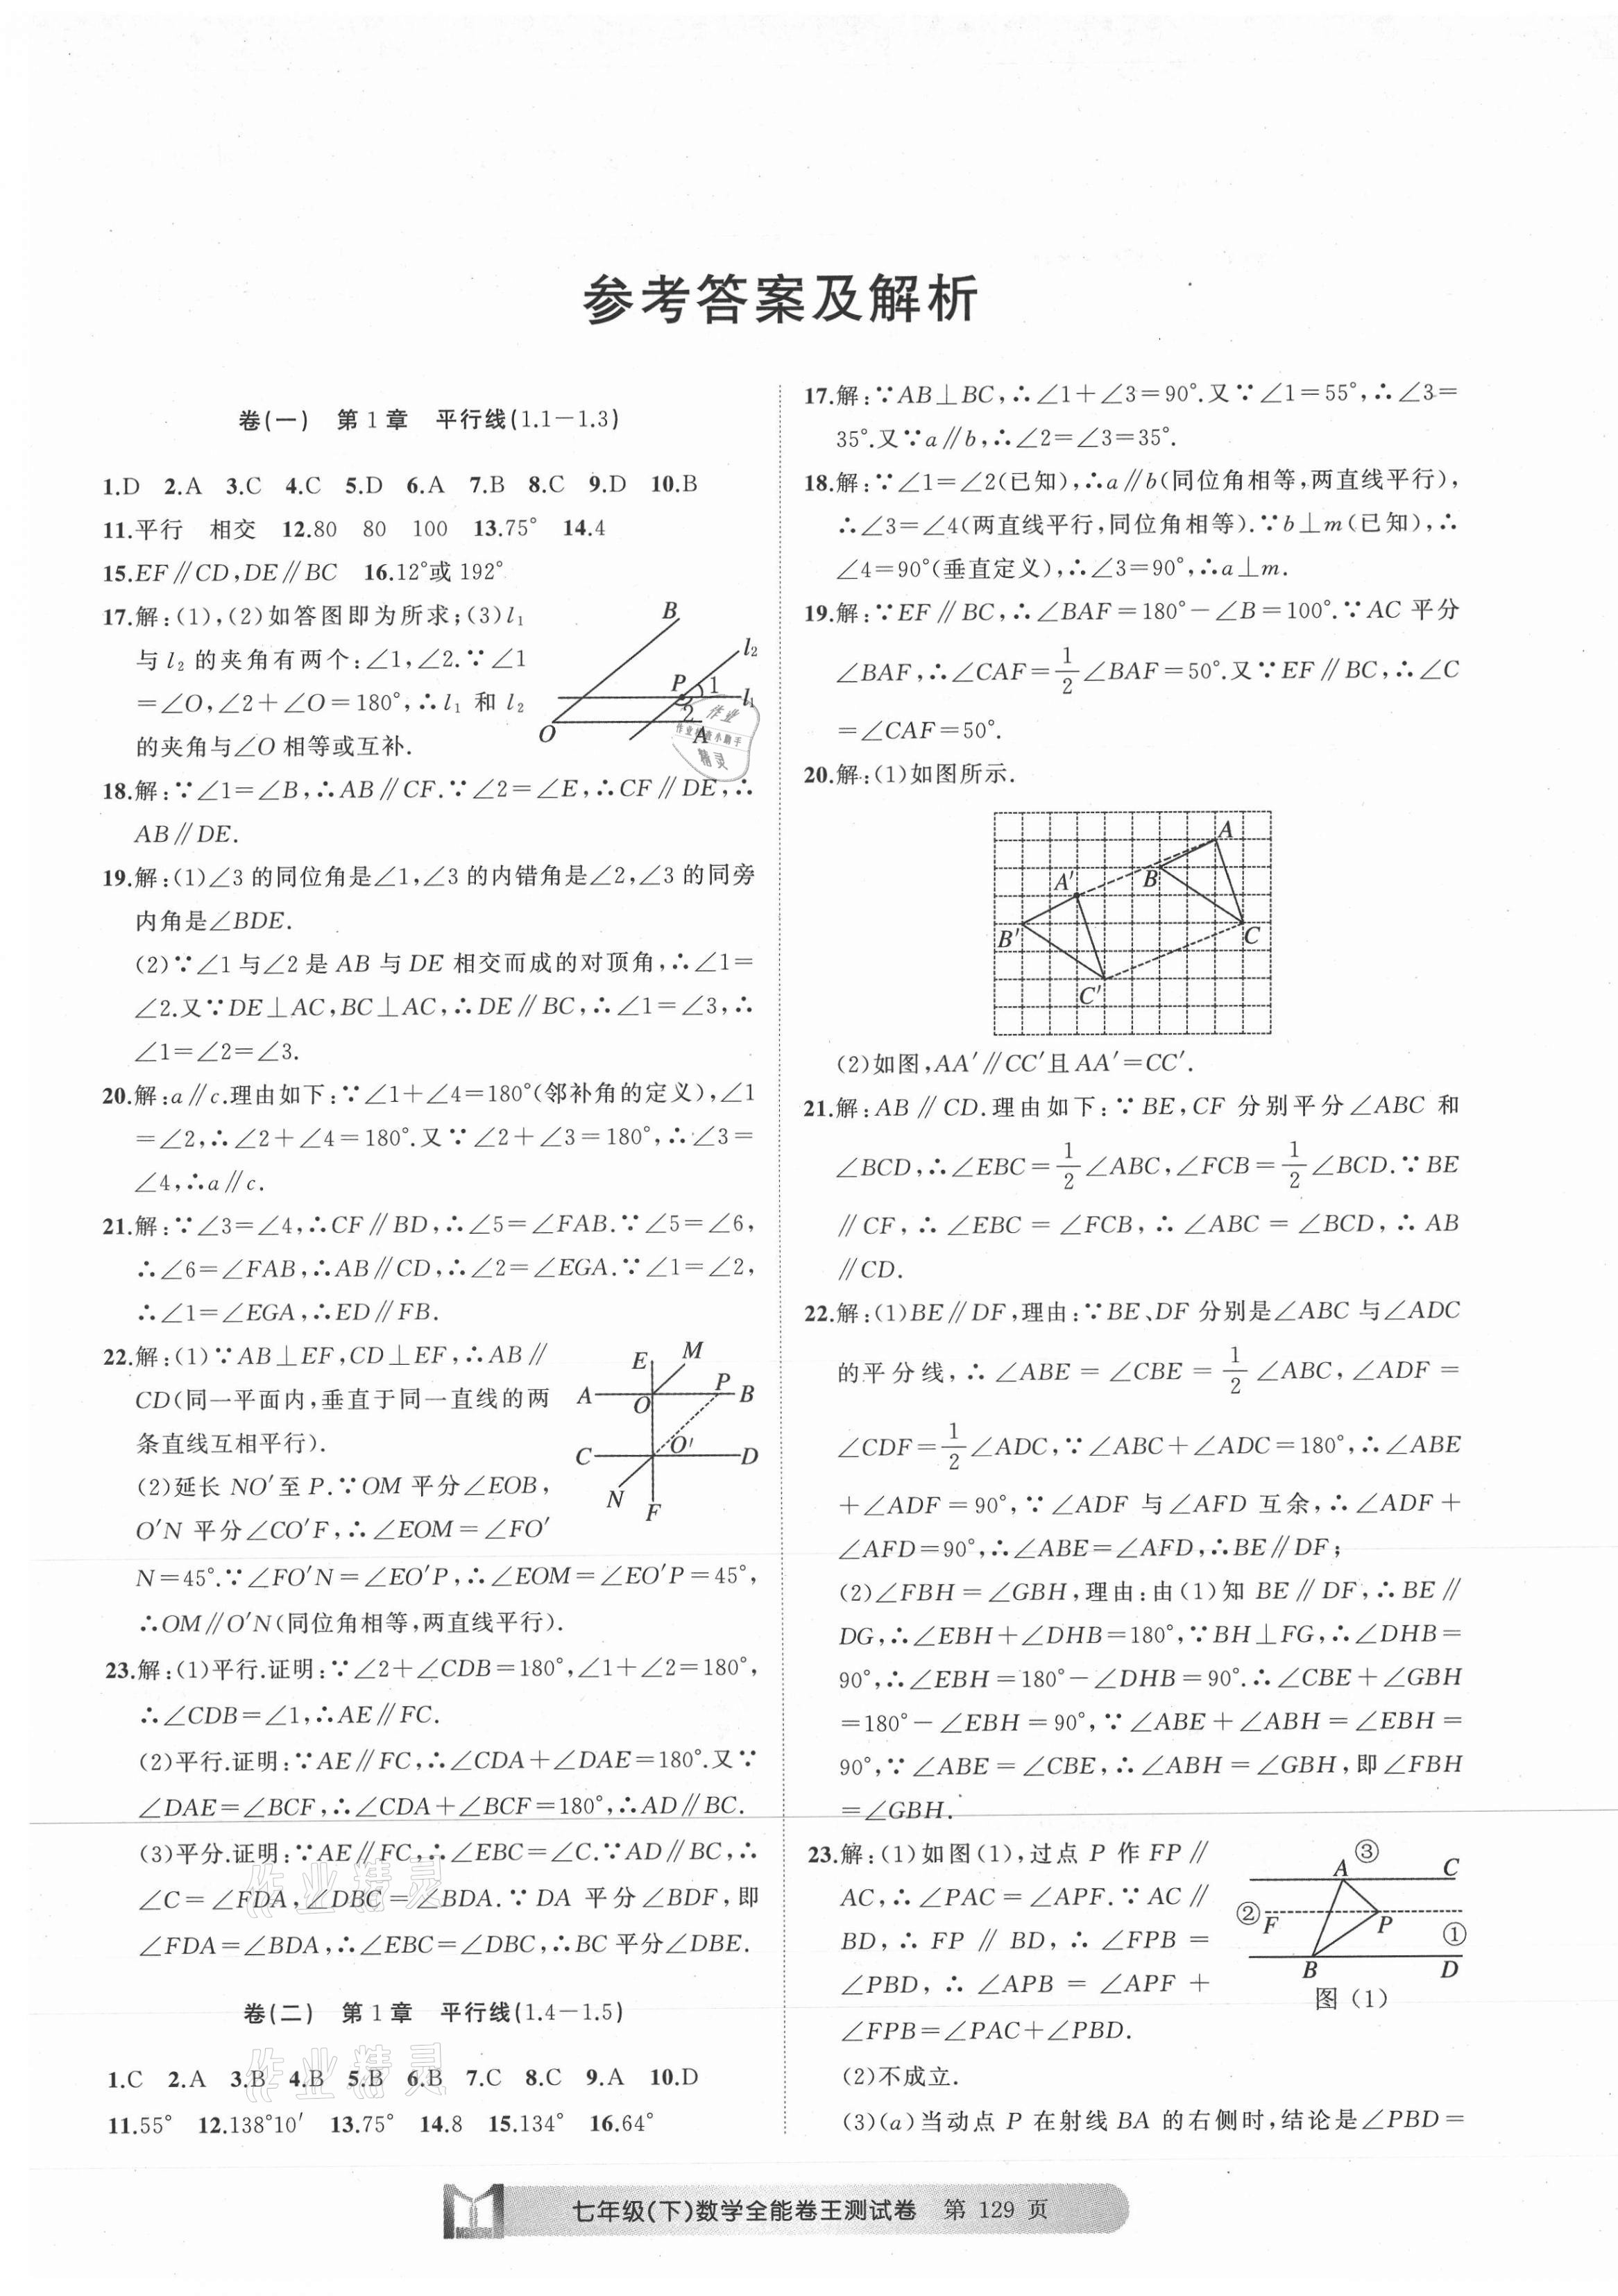 参考答案及解析
卷(一) 第1章 平行线(1.1－1.3)
1.D 2.A 3.C 4.C 5.D 6.A 7.B 8.C 9.D 10.B
11.平行 相交 12.80 80 100 13.75° 14.4
15.EF∥CD,DE∥BC 16.12°或192°
17.解:(1),(2)如答图即为所求;(3)l₁
与l₂的夹角有两个:∠1,∠2.∵∠1
=∠O,∠2+∠O=180°,∴l₁和l₂
的夹角与∠O相等或互补.
B
l₂
P
1
l₁
2
O
A
18.解:∵∠1=∠B,∴AB∥CF.∵∠2=∠E,∴CF∥DE,∴
AB∥DE.
19.解:(1)∠3的同位角是∠1,∠3的内错角是∠2,∠3的同旁
内角是∠BDE.
(2)∵∠1与∠2是AB与DE相交而成的对顶角,∴∠1=
∠2.又∵DE⊥AC,BC⊥AC,∴DE∥BC,∴∠1=∠3,∴
∠1=∠2=∠3.
20.解:a∥c.理由如下:∵∠1+∠4=180°(邻补角的定义),∠1
=∠2,∴∠2+∠4=180°.又∵∠2+∠3=180°,∴∠3=
∠4,∴a∥c.
21.解:∵∠3=∠4,∴CF∥BD,∴∠5=∠FAB.∵∠5=∠6,
∴∠6=∠FAB,∴AB∥CD,∴∠2=∠EGA.∵∠1=∠2,
∴∠1=∠EGA,∴ED∥FB.
22.解:(1)∵AB⊥EF,CD⊥EF,∴AB∥
CD(同一平面内,垂直于同一直线的两
条直线互相平行).
(2)延长NO′至P.∵OM平分∠EOB,
O′N平分∠CO′F,∴∠EOM=∠FO′
N=45°.∵∠FO′N=∠EO′P,∴∠EOM=∠EO′P=45°,
∴OM∥O′N(同位角相等,两直线平行).
E M
A O P B
C O′ D
N F
23.解:(1)平行.证明:∵∠2+∠CDB=180°,∠1+∠2=180°,
∴∠CDB=∠1,∴AE∥FC.
(2)平行.证明:∵AE∥FC,∴∠CDA+∠DAE=180°.又∵
∠DAE=∠BCF,∴∠CDA+∠BCF=180°,∴AD∥BC.
(3)平分.证明:∵AE∥FC,∴∠EBC=∠C.∵AD∥BC,∴
∠C=∠FDA,∠DBC=∠BDA.∵DA平分∠BDF,即
∠FDA=∠BDA,∴∠EBC=∠DBC,∴BC平分∠DBE.
卷(二) 第1章 平行线(1.4－1.5)
1.C 2.A 3.B 4.B 5.B 6.B 7.C 8.C 9.A 10.D
11.55° 12.138°10′ 13.75° 14.8 15.134° 16.64°
17.解:∵AB⊥BC,∴∠1+∠3=90°.又∵∠1=55°,∴∠3=
35°.又∵a∥b,∴∠2=∠3=35°.
18.解:∵∠1=∠2(已知),∴a∥b(同位角相等,两直线平行),
∴∠3=∠4(两直线平行,同位角相等).∵b⊥m(已知),∴
∠4=90°(垂直定义),∴∠3=90°,∴a⊥m.
19.解:∵EF∥BC,∴∠BAF=180°－∠B=100°.∵AC平分
∠BAF,∴∠CAF=1/2∠BAF=50°.又∵EF∥BC,∴∠C
=∠CAF=50°.
20.解:(1)如图所示.
A
A′ B
B′ C
C′
(2)如图,AA′∥CC′且AA′=CC′.
21.解:AB∥CD.理由如下:∵BE,CF分别平分∠ABC和
∠BCD,∴∠EBC=1/2∠ABC,∠FCB=1/2∠BCD.∵BE
∥CF,∴∠EBC=∠FCB,∴∠ABC=∠BCD,∴AB
∥CD.
22.解:(1)BE∥DF,理由:∵BE、DF分别是∠ABC与∠ADC
的平分线,∴∠ABE=∠CBE=1/2∠ABC,∠ADF=
∠CDF=1/2∠ADC,∵∠ABC+∠ADC=180°,∴∠ABE
+∠ADF=90°,∵∠ADF与∠AFD互余,∴∠ADF+
∠AFD=90°,∴∠ABE=∠AFD,∴BE∥DF;
(2)∠FBH=∠GBH,理由:由(1)知BE∥DF,∴BE∥
DG,∴∠EBH+∠DHB=180°,∵BH⊥FG,∴∠DHB=
90°,∴∠EBH=180°－∠DHB=90°.∴∠CBE+∠GBH
=180°－∠EBH=90°,∵∠ABE+∠ABH=∠EBH=
90°,∵∠ABE=∠CBE,∴∠ABH=∠GBH,即∠FBH
=∠GBH.
23.解:(1)如图(1),过点P作FP∥
AC,∴∠PAC=∠APF.∵AC∥
BD,∴FP∥BD,∴∠FPB=
∠PBD,∴∠APB=∠APF+
∠FPB=∠PAC+∠PBD.
A ③ C
② F P ①
B D
图(1)
(2)不成立.
(3)(a)当动点P在射线BA的右侧时,结论是∠PBD=
七年级(下)数学全能卷王测试卷 第129页
作业精灵
作业精灵